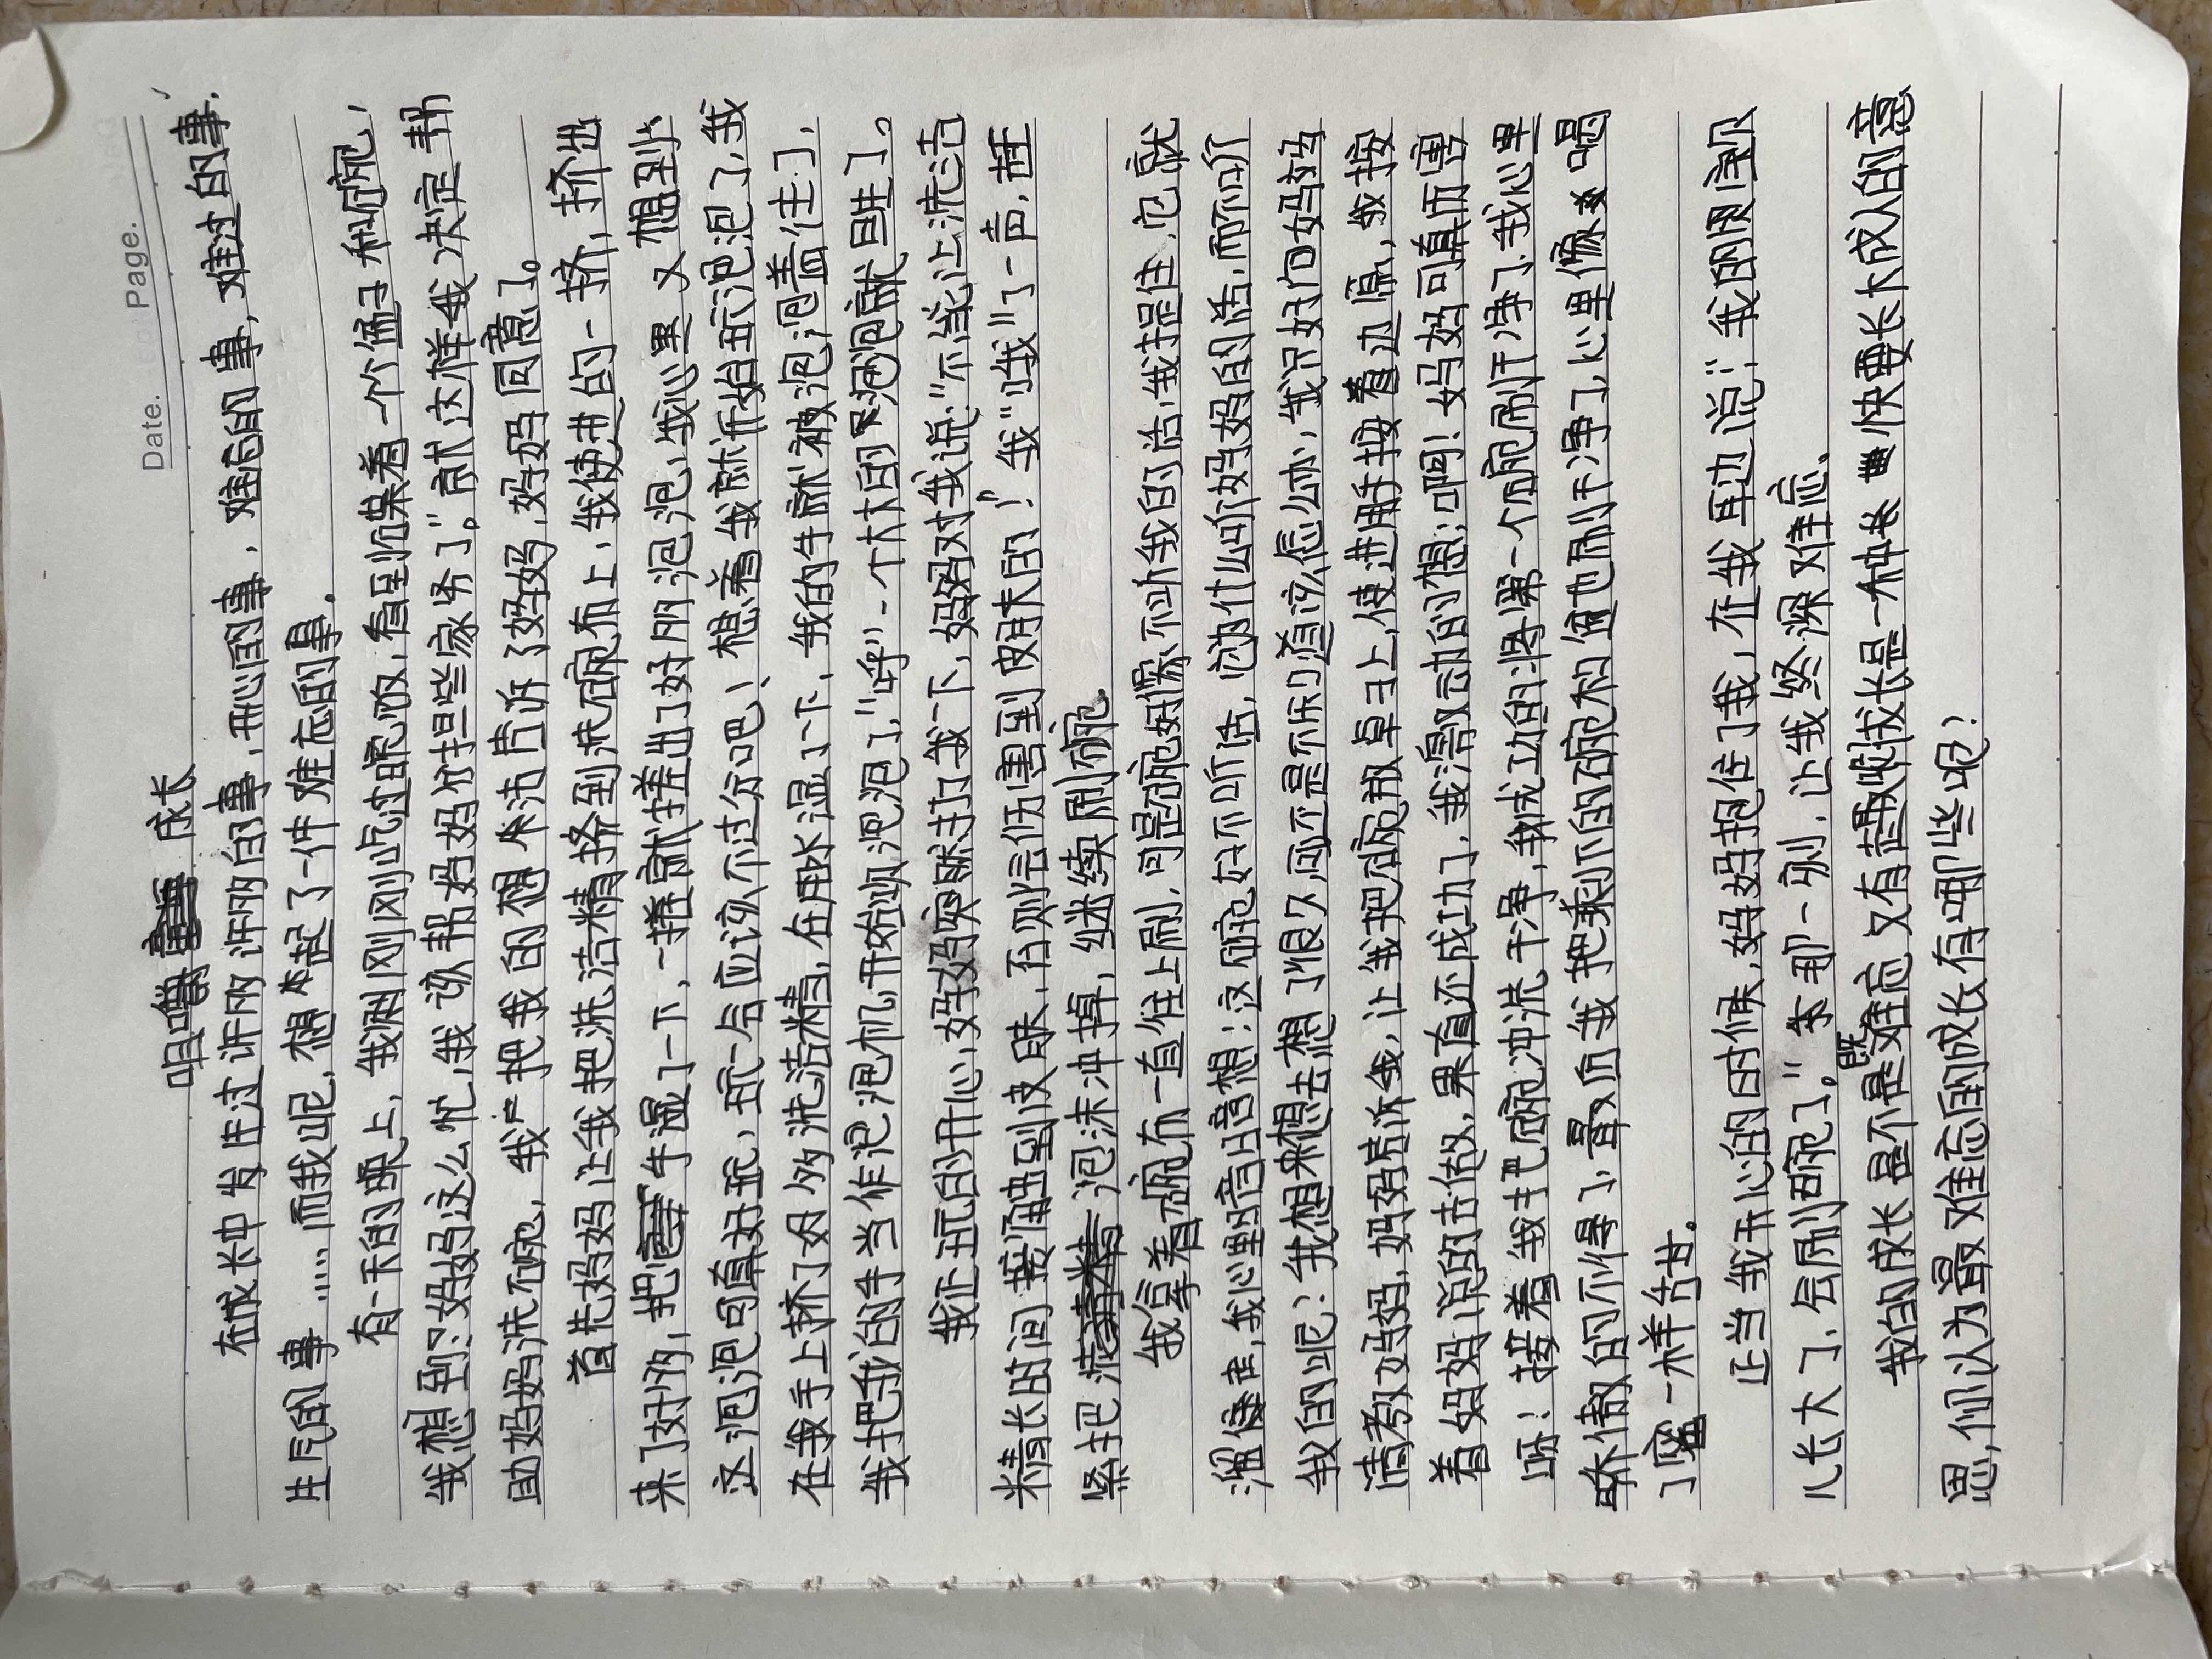 Date. Page.
成长
在成长中发生过许多许多的事，开心的事，难忘的事，难过的事，
生气的事……而我呢，想起了一件难忘的事。
有一天的晚上，我刚刚吃过晚饭，看到妈妈拿着一个盘子和碗，
我想到：妈妈这么忙，我该帮妈妈分担些家务了。"就这样我决定帮
助妈妈洗碗，我把我的想法告诉了妈妈，妈妈同意了。
首先妈妈让我把洗洁精挤到洗碗布上，我使进的一挤，挤出
来了好多，把手湿了一下，一搓就搓出了好多泡泡，我心里又想到：
这泡泡可真好玩，玩一会应该不过分吧！想着我就开始玩泡泡了，我
在我手上挤了好多洗洁精，在用水湿了一下，我的手就被泡泡盖住了，
我把我的手当作泡泡机开始吹泡泡了，"呼"一个大大的泡泡就诞生了。
我正玩的开心，妈妈突然打了我一下，妈妈对我说："不能让洗洁
精长时间接触到皮肤，否则会伤害到皮肤的！"我"哦"了一声，连
紧把泡沫冲掉，继续刷碗。
我拿着碗布一直往上刷，可是碗好像不听我的话，我捏住，它就
溜走，我心里暗暗想：这碗好不听话，它为什么听妈妈的话，而不听
我的呢？我想来想去想了很久可还是不知道该怎么办，我只好向妈妈
请教妈妈，妈妈告诉我，让我把碗放桌子上，使进用手按着边缘，我按
着妈妈说的去做，果真还成功了，我激动的想：啊！妈妈可真厉害
呀！接着我把碗冲洗干净，我成功的将第一个碗刷干净了，我心里
骄傲的不得了，最后我把剩下的碗和筷也刷干净了，心里像喝
了蜜一样甘甘。
正当我开心的时候，妈妈抱住了我，在我耳边说："我的周宝贝
儿长大了，会刷碗了。"那一刻，让我终深难忘。
我的成长是既难忘又有趣，成长是一种快要长大成人的意
思，你认为最难忘的成长有哪些呢？